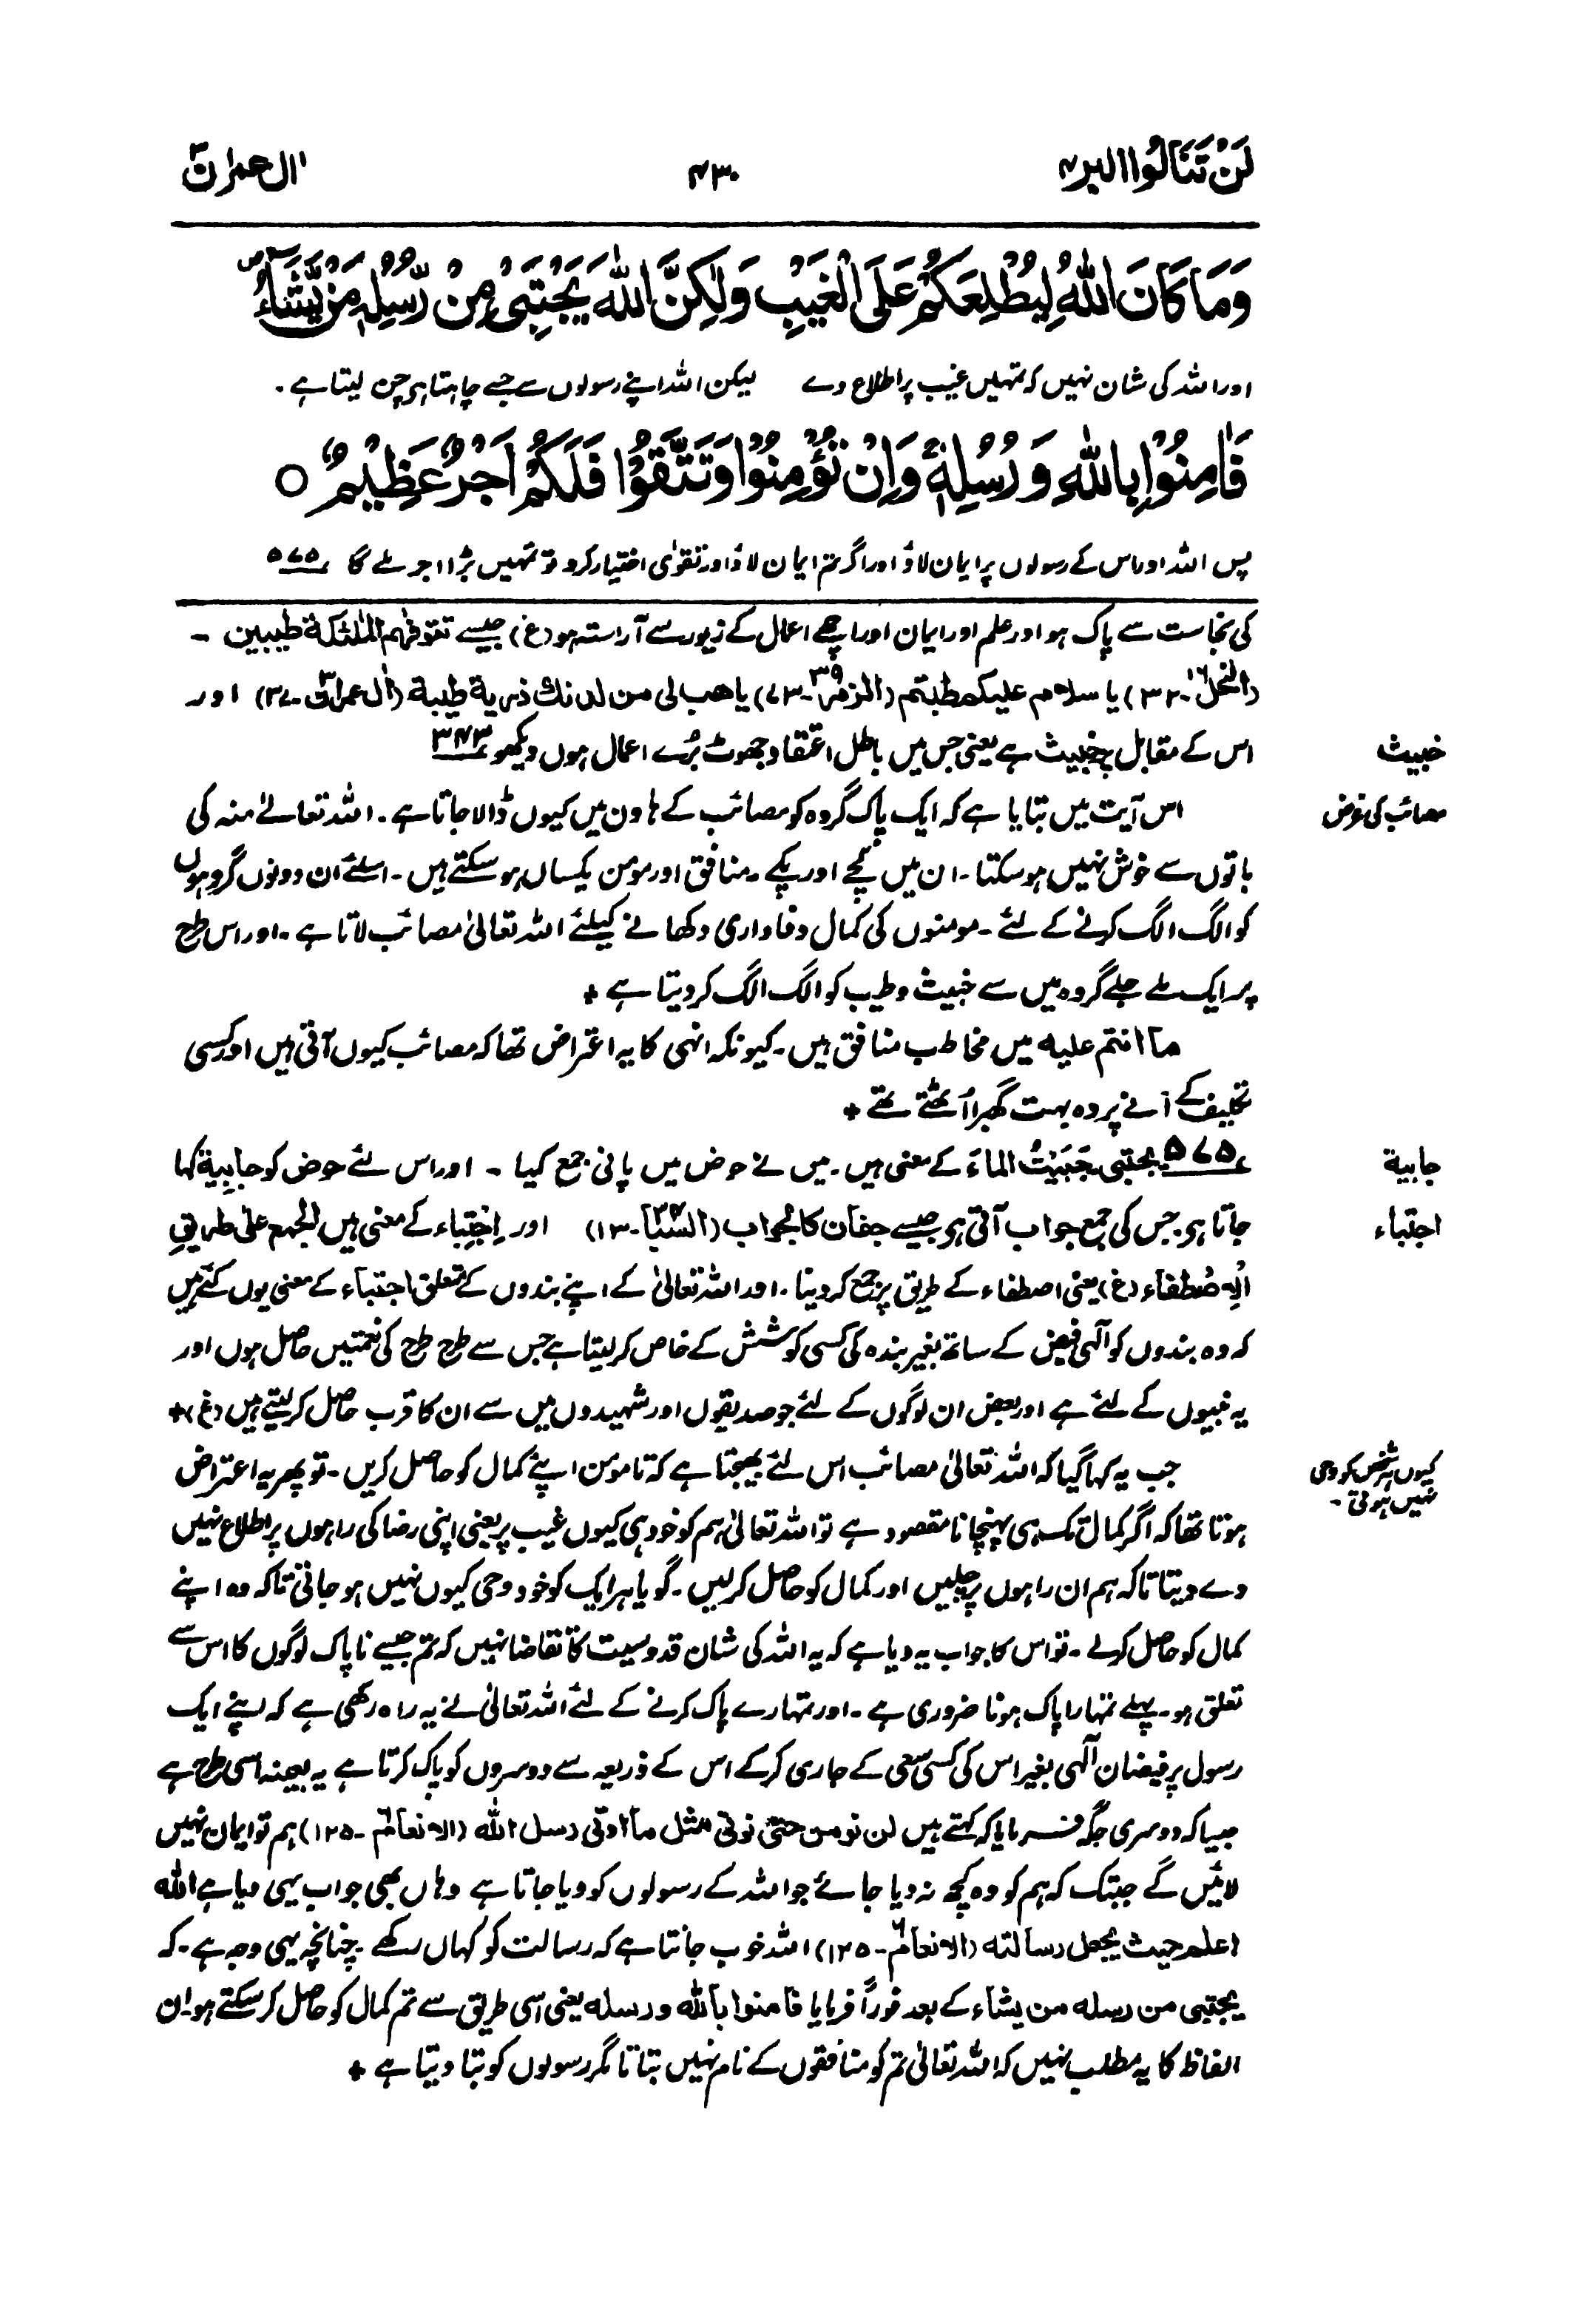 لَنْ تَنَالُوا البر۴
۴۳۰
اٰل عمران۳
وَمَا كَانَ اللّٰهُ لِيُطْلِعَكُمْ عَلَى الْغَيْبِ وَلٰكِنَّ اللّٰهَ يَجْتَبِىْ مِنْ رُّسُلِهٖ مَنْ يَّشَآءُ
اور اللہ کی شان نہیں کہ تمہیں غیب پر اطلاع دے لیکن اللہ اپنے رسولوں سے جسے چاہتا ہے چن لیتا ہے ۔
فَاٰمِنُوْا بِاللّٰهِ وَرُسُلِهٖ وَاِنْ تُؤْمِنُوْا وَتَتَّقُوْا فَلَكُمْ اَجْرٌ عَظِيْمٌ ○
پس اللہ اور اس کے رسولوں پر ایمان لاؤ اور اگر تم ایمان لاؤ اور تقوٰی اختیار کرو تو تمہیں بڑا اجر ملے گا ۵۷۵
کی نجاست سے پاک ہو اور علم اور ایمان اور اچھے اعمال کے زیور سے آراستہ ہو (غ) جیسے تتوفٰهم الملٰئكة طيبين ۔
(النحل۱۶۔۳۲) یا سلام علیکم طبتم (الزمر۳۹۔۷۳) یا هب لى من لدنك ذرية طيبة (اٰل عمران۳۔۳۷) اور
اس کے مقابل پر خبیث ہے یعنی جس میں باطل اعتقاد جھوٹ بُرے اعمال ہوں دیکھو ۳۴۳
خبیث
اس آیت میں بتایا ہے کہ ایک پاک گروہ کو مصائب کے ہاون میں کیوں ڈالا جاتا ہے۔ اللہ تعالےٰ منہ کی
مصائب کی غرض
باتوں سے خوش نہیں ہو سکتا ۔ ان میں کچے اور پکے ۔ منافق اور مومن یکساں ہو سکتے ہیں ۔ اسلئے ان دونوں گروہوں
کو الگ الگ کرنے کے لئے ۔ مومنوں کی کمال وفاداری دکھانے کیلئے اللہ تعالیٰ مصائب لاتا ہے ۔ اور اس طرح
پر ایک ملے جلے گروہ میں سے خبیث و طیب کو الگ الگ کر دیتا ہے ٭
ما انتم علیه میں مخاطب منافق ہیں ۔ کیونکہ انہی کا یہ اعتراض تھا کہ مصائب کیوں آتی ہیں اور کسی
تکلیف کے آنے پر وہ بہت گھبرا اُٹھتے تھے ٭
۵۷۵ یجتبی۔ جَبَيْتُ الماءَ کے معنی ہیں ۔ میں نے حوض میں پانی جمع کیا ۔ اور اس لئے حوض کو جابِية کہا
جابیة
جاتا ہو جس کی جمع جواب آتی ہو جیسے جفان كالجواب (السبا۳۴۔۱۳) اور اِجْتِباء کے معنی ہیں الجمع على طريقِ
اجتباء
الِاصْطفاء (غ) یعنی اصطفاء کے طریق پر جمع کر دینا ۔ اور اللہ تعالیٰ کے اپنے بندوں کے متعلق اجتباء کے معنی یوں کئے ہیں
کہ وہ بندوں کو الٰہی فیض کے ساتھ بغیر بندہ کی کسی کوشش کے خاص کر لیتا ہے جس سے طرح طرح کی نعمتیں حاصل ہوں اور
یہ نبیوں کے لئے ہے اور بعض ان لوگوں کے لئے جو صدیقوں اور شہیدوں میں سے ان کا قرب حاصل کر لیتے ہیں (غ) ٭
جب یہ کہا گیا کہ اللہ تعالیٰ مصائب اس لئے بھیجتا ہے کہ تا مومن اپنے کمال کو حاصل کریں ۔ تو پھر یہ اعتراض
کیوں ہر شخص کو وحی
نہیں ہوتی ۔
ہوتا تھا کہ اگر کمال تک ہی پہنچانا مقصود ہے تو اللہ تعالیٰ ہم کو خود ہی کیوں غیب پر یعنی اپنی رضا کی راہوں پر اطلاع نہیں
دے دیتا تاکہ ہم ان راہوں پر چلیں اور کمال کو حاصل کر لیں ۔ گویا ہر ایک کو خود وحی کیوں نہیں ہو جاتی تاکہ وہ اپنے
کمال کو حاصل کرلے ۔ تو اس کا جواب یہ دیا ہے کہ یہ اللہ کی شان قدوسیت کا تقاضا نہیں کہ تم جیسے ناپاک لوگوں کا اس سے
تعلق ہو ۔ پہلے تمہارا پاک ہونا ضروری ہے ۔ اور تمہارے پاک کرنے کے لئے اللہ تعالیٰ نے یہ راہ رکھی ہے کہ اپنے ایک
رسول پر فیضان الٰہی بغیر اس کی کسی سعی کے جاری کر کے اس کے ذریعہ سے دوسروں کو پاک کرتا ہے یہ بعینہ اسی طرح ہے
جیسا کہ دوسری جگہ فرمایا کہ کہتے ہیں لن نومن حتى نوتى مثل ما اوتى رسل الله (الانعام۶۔۱۲۵) ہم تو ایمان نہیں
لائیں گے جبتک کہ ہم کو وہ کچھ نہ دیا جائے جو اللہ کے رسولوں کو دیا جاتا ہے وہاں بھی جواب یہی دیا ہے الله
اعلم حیث یجعل رسالته (الانعام۶۔۱۲۵) اللہ خوب جانتا ہے کہ رسالت کو کہاں رکھے ۔ چنانچہ یہی وجہ ہے ۔ کہ
یجتبی من رسله من یشاء کے بعد فوراً فرمایا فامنوا بالله ورسله یعنی اسی طریق سے تم کمال کو حاصل کر سکتے ہو ۔ ان
الفاظ کا یہ مطلب نہیں کہ اللہ تعالیٰ تم کو منافقوں کے نام نہیں بتاتا مگر رسولوں کو بتا دیتا ہے ٭